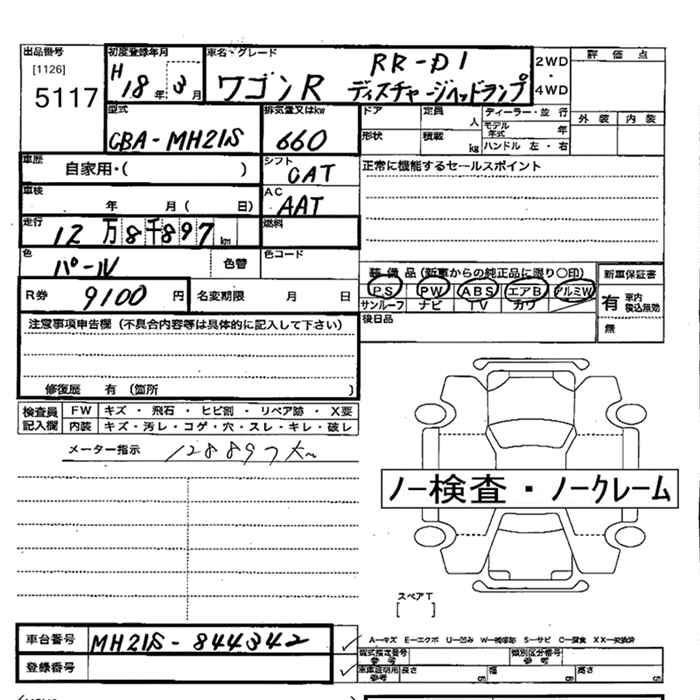 出品番号
[1126]
5117
初度登録年月
H18年3月
車名・グレード
ワゴンR RR-DI
ディスチャージヘッドランプ
2WD
・
4WD
評価点
外装 内装
型式
CBA-MH21S
排気量又はkw
660
ドア 定員 人
形状 積載 kg
ディーラー・並行
モデル年式 年
ハンドル 左・右
車歴
自家用・( )
シフト
CAT
正常に機能するセールスポイント
車検
年 月( 日)
AC
AAT
走行
12万8千897km
燃料
色
パール
色替
色コード
R券 9100円
名変期限 月 日
装備品(新車からの純正品に限り○印)
PS PW ABS エアB アルミW
サンルーフ ナビ TV カワ
新車保証書
有 車内積込無効
無
後日品
注意事項申告欄(不具合内容等は具体的に記入して下さい)
修復歴 有(箇所 )
検査員記入欄
FW キズ・飛石・ヒビ割・リペア跡・X要
内装 キズ・汚レ・コゲ・穴・スレ・キレ・破レ
メーター指示 128897km
ノー検査・ノークレーム
スペアT
[ ]
車台番号 MH21S-844342
登録番号
A-キズ E-エクボ U-凹み W-補修跡 S-サビ C-腐食 XX-交換済
型式指定番号 参考
類別区分番号 参考
車庫証明用 参考
長さ 幅 高さ